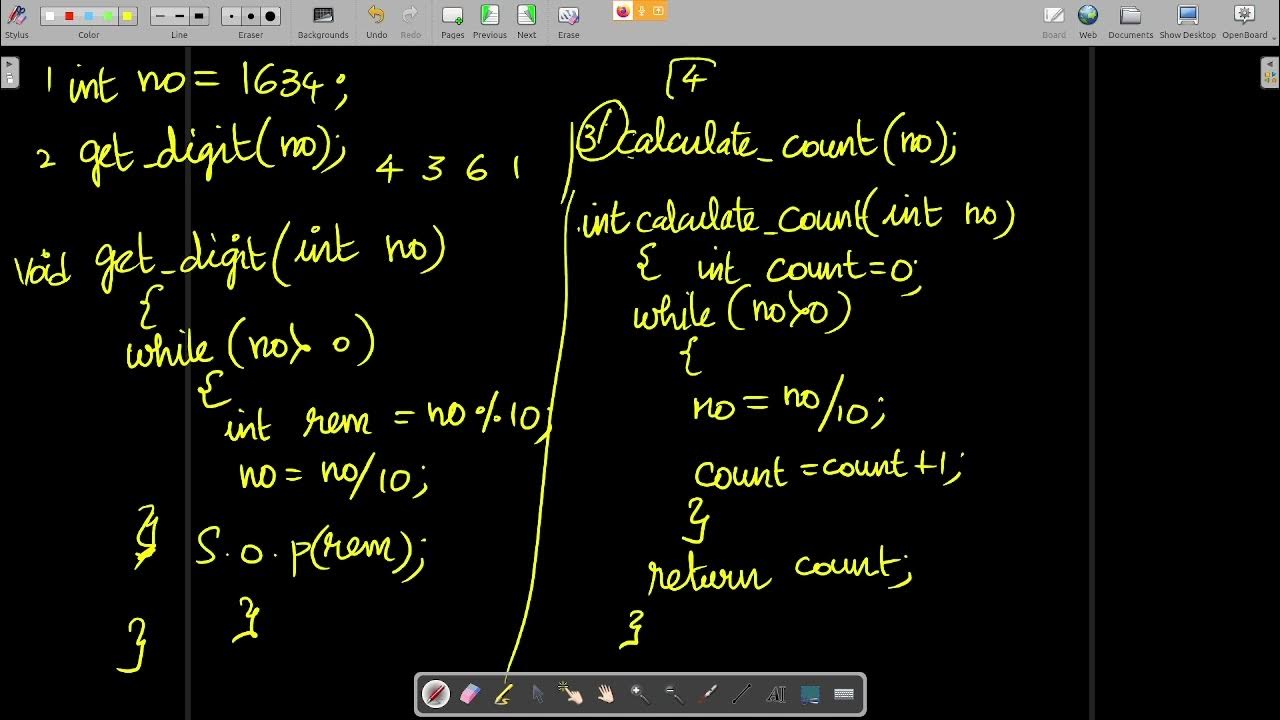 Stylus Color Line Eraser Backgrounds Undo Redo Pages Previous Next Erase Board Web Documents Show Desktop OpenBoard
1 int no = 1634;
2 get_digit(no);
4 3 6 1
void get_digit(int no)
{
while (no > 0)
{
int rem = no % 10;
no = no/10;
} S.o.p(rem);
}
}
4
3 calculate_count(no);
int calculate_count(int no)
{ int count=0;
while (no>0)
{
no = no/10;
count = count +1;
}
return count;
}
AI